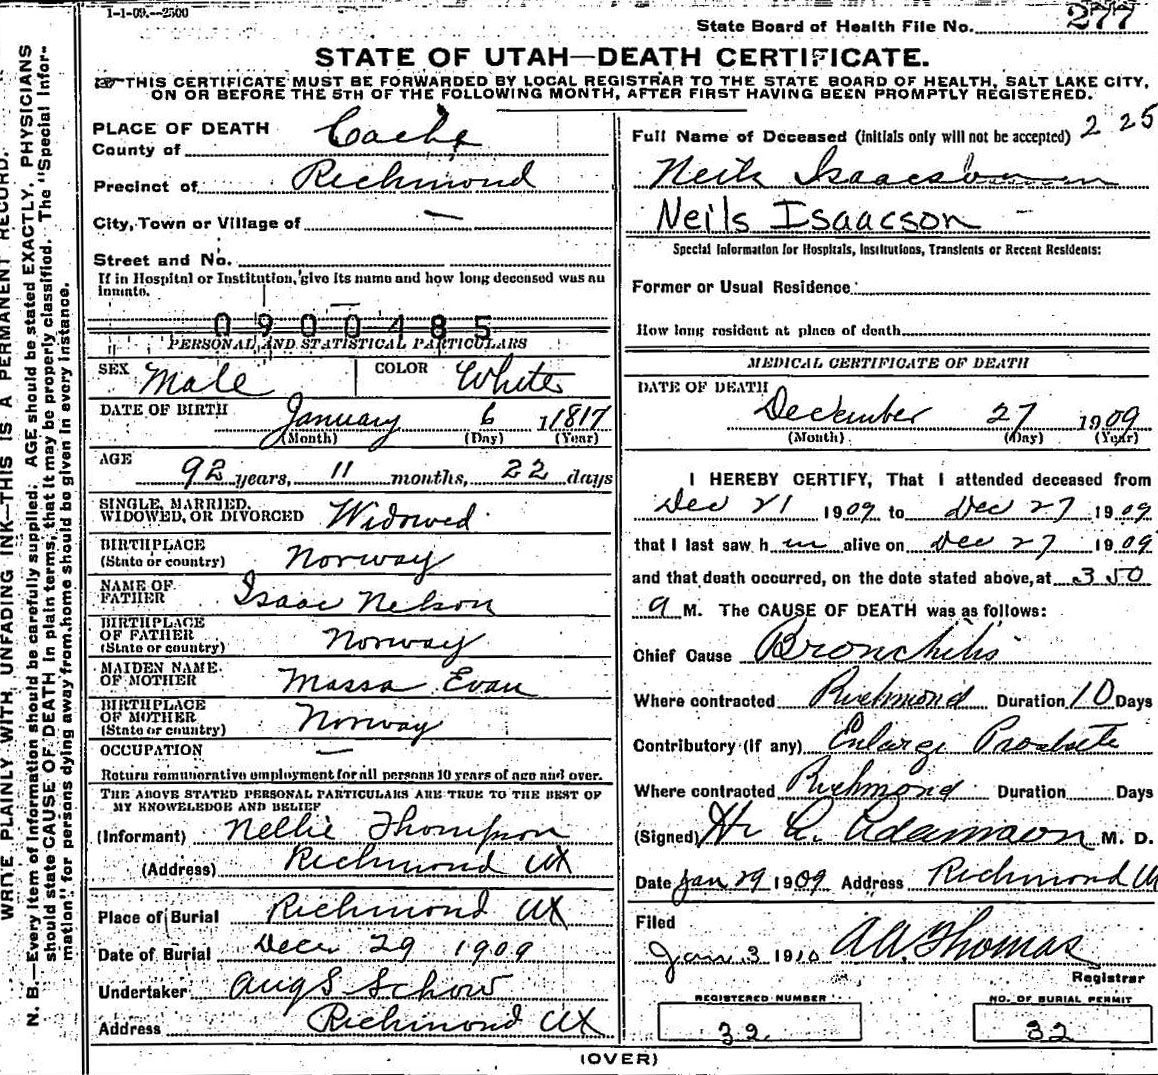 1-1-09.—2500
State Board of Health File No. 277
STATE OF UTAH—DEATH CERTIFICATE.
THIS CERTIFICATE MUST BE FORWARDED BY LOCAL REGISTRAR TO THE STATE BOARD OF HEALTH, SALT LAKE CITY,
ON OR BEFORE THE 5TH OF THE FOLLOWING MONTH, AFTER FIRST HAVING BEEN PROMPTLY REGISTERED.
WRITE PLAINLY WITH UNFADING INK—THIS IS A PERMANENT RECORD.
N. B.—Every item of information should be carefully supplied. AGE should be stated EXACTLY. PHYSICIANS
should state CAUSE OF DEATH in plain terms, that it may be properly classified. The "Special Infor-
mation" for persons dying away from home should be given in every instance.
PLACE OF DEATH
County of Cache
Precinct of Richmond
City, Town or Village of —
Street and No.
If in Hospital or Institution, give its name and how long deceased was an
inmate. —
0900485
PERSONAL AND STATISTICAL PARTICULARS
SEX Male COLOR White
DATE OF BIRTH January 6 1817
(Month) (Day) (Year)
AGE 92 years, 11 months, 22 days
SINGLE, MARRIED,
WIDOWED, OR DIVORCED Widowed
BIRTHPLACE
(State or country) Norway
NAME OF
FATHER Isaac Nelson
BIRTHPLACE
OF FATHER
(State or country) Norway
MAIDEN NAME
OF MOTHER Massa Evan
BIRTHPLACE
OF MOTHER
(State or country) Norway
OCCUPATION —
Return remunerative employment for all persons 10 years of age and over.
THE ABOVE STATED PERSONAL PARTICULARS ARE TRUE TO THE BEST OF
MY KNOWLEDGE AND BELIEF
(Informant) Nellie Thompson
(Address) Richmond Ut
Place of Burial Richmond Ut
Date of Burial Dec 29 1909
Undertaker Aug S Schow
Address Richmond Ut
Full Name of Deceased (initials only will not be accepted) 225
Neils Isaacson
Neils Isaacson —
Special Information for Hospitals, Institutions, Transients or Recent Residents:
Former or Usual Residence
How long resident at place of death
MEDICAL CERTIFICATE OF DEATH
DATE OF DEATH
December 27 1909
(Month) (Day) (Year)
I HEREBY CERTIFY, That I attended deceased from
Dec 21 1909 to Dec 27 1909
that I last saw him alive on Dec 27 1909
and that death occurred, on the date stated above, at 350
a M. The CAUSE OF DEATH was as follows:
Chief Cause Bronchitis
Where contracted Richmond Duration 10 Days
Contributory (if any) Enlarge Prostate
Where contracted Richmond Duration Days
(Signed) Adamson M. D.
Date Jan 29 1909 Address Richmond Ut
Filed
Jan 3 1910 A.A. Thomas
Registrar
REGISTERED NUMBER
32
NO. OF BURIAL PERMIT
32
(OVER)